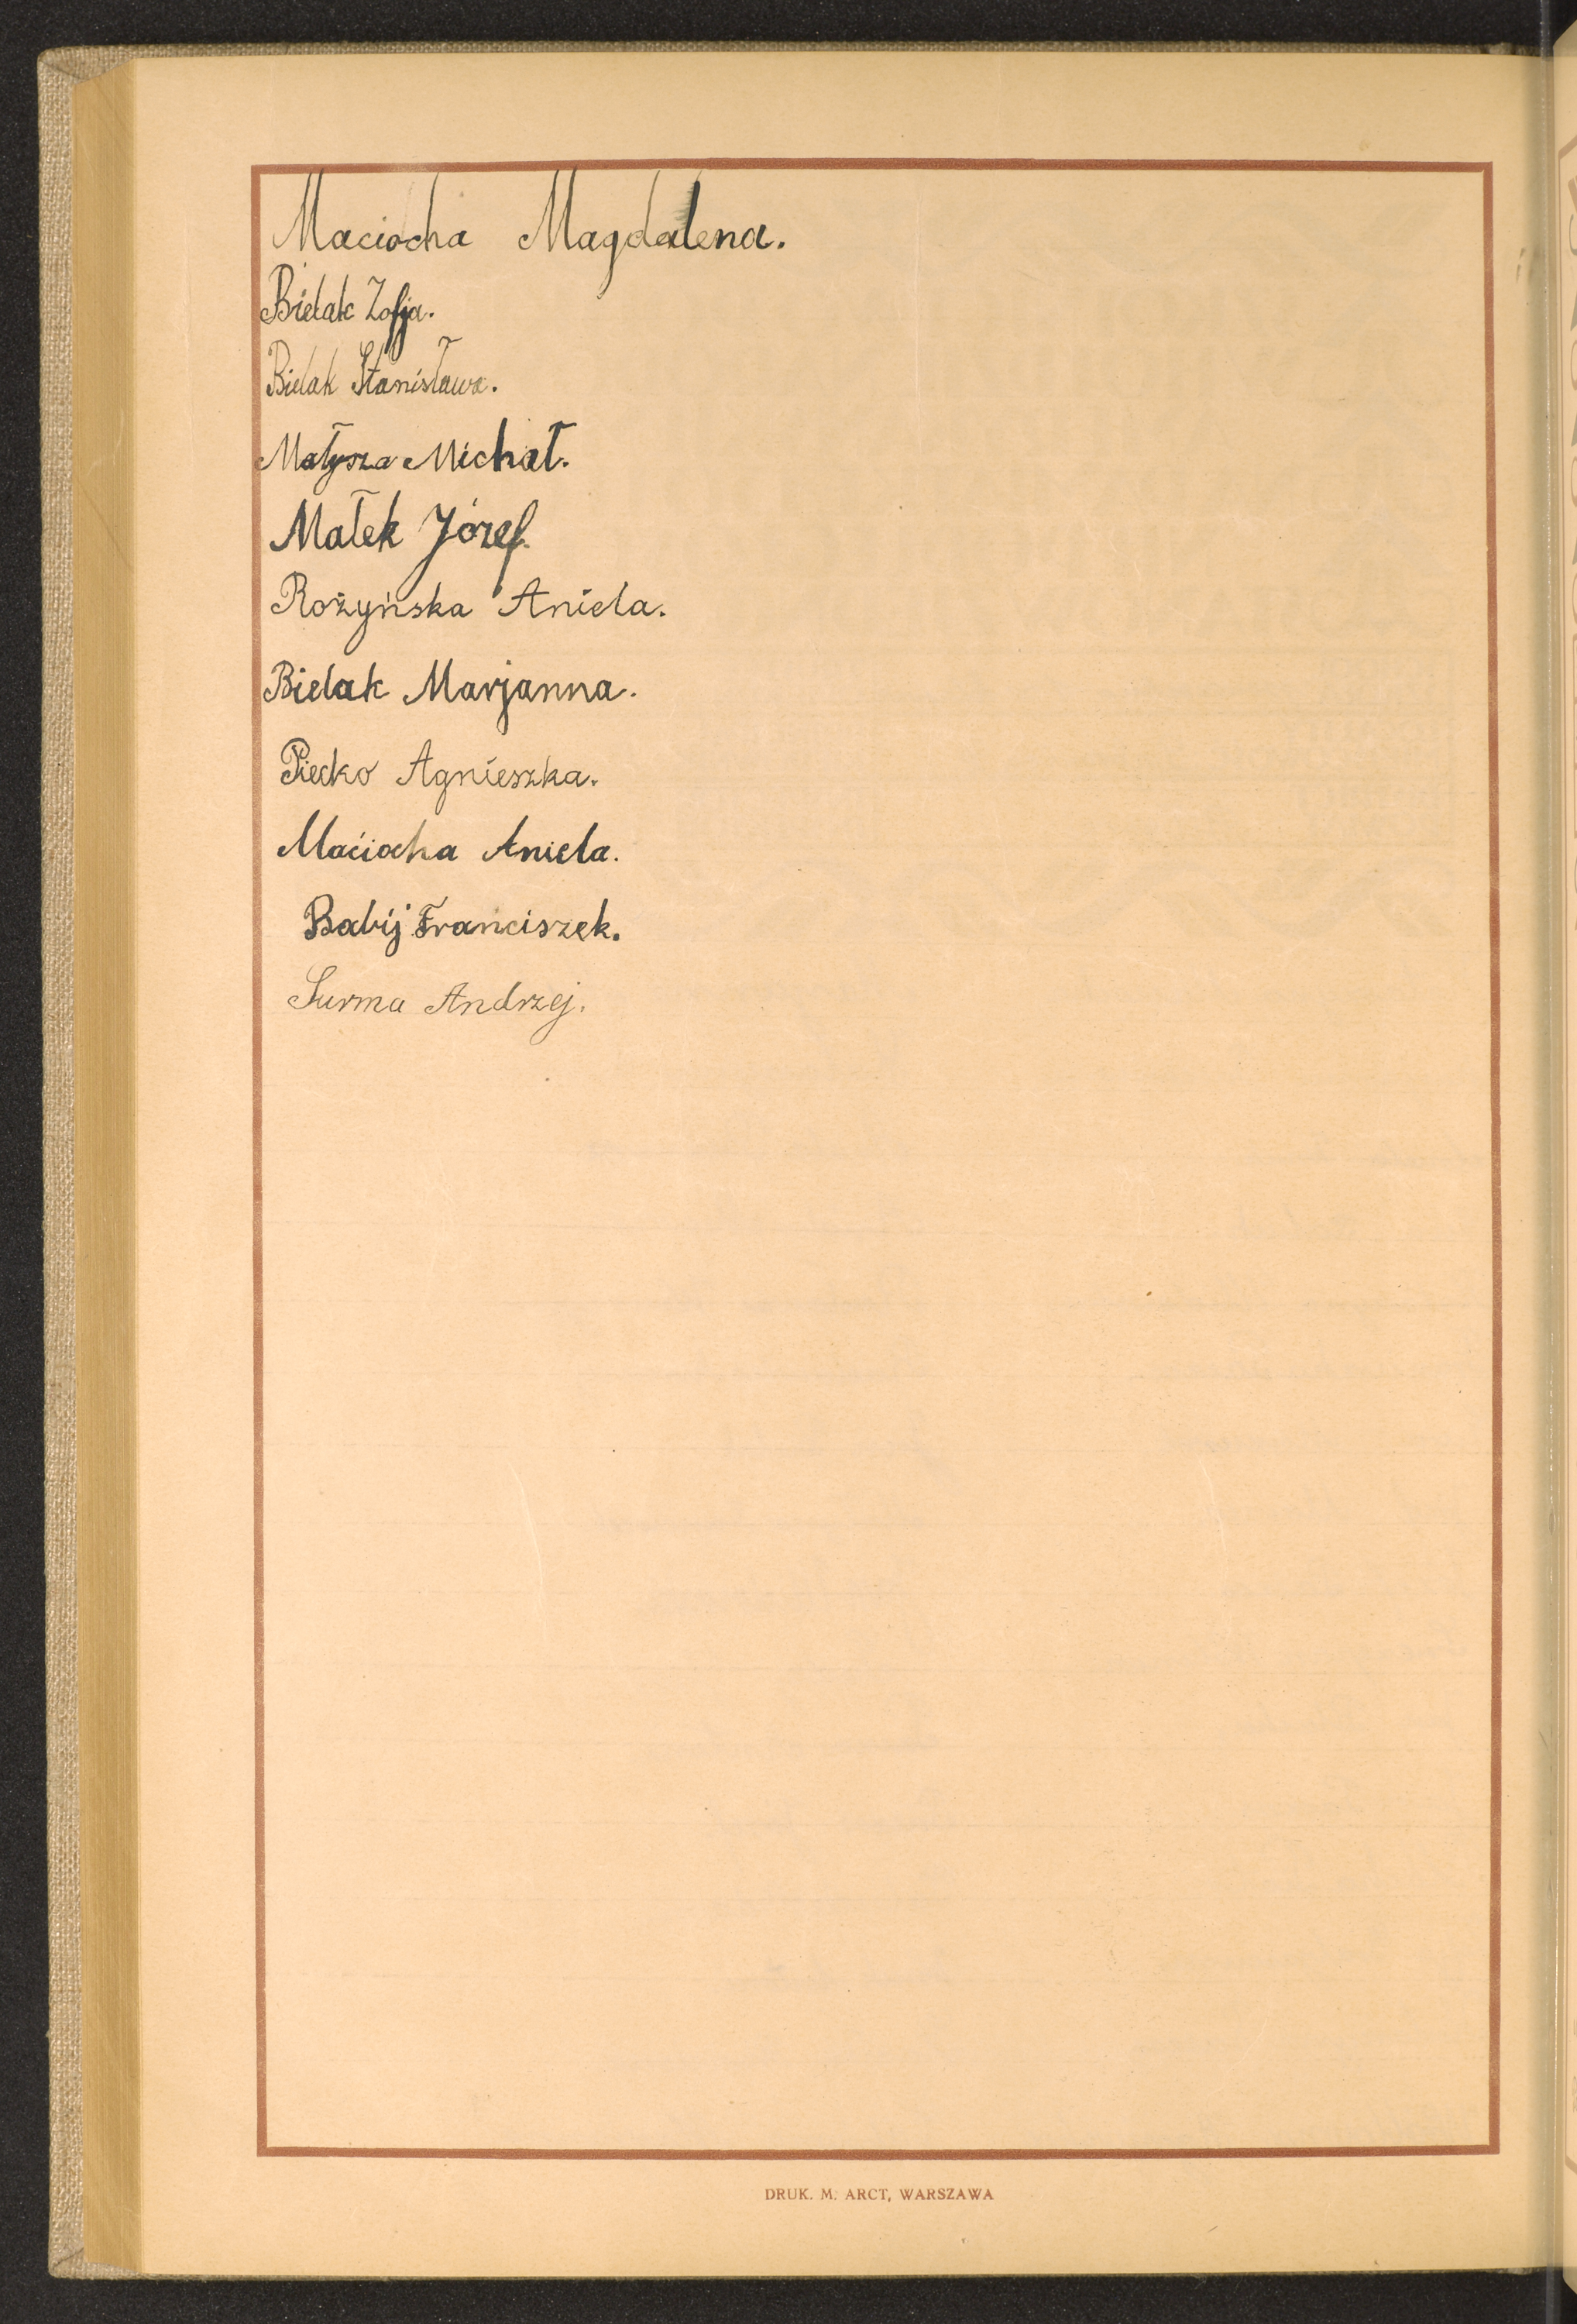 Maciocha Magdalena.
Bielak Zofja.
Bielak Stanisława.
Małysza Michał.
Małek Józef.
Rożyńska Aniela.
Bielak Marjanna.
Piecko Agnieszka.
Maciocha Aniela.
Babij Franciszek.
Surma Andrzej.
DRUK. M. ARCT, WARSZAWA